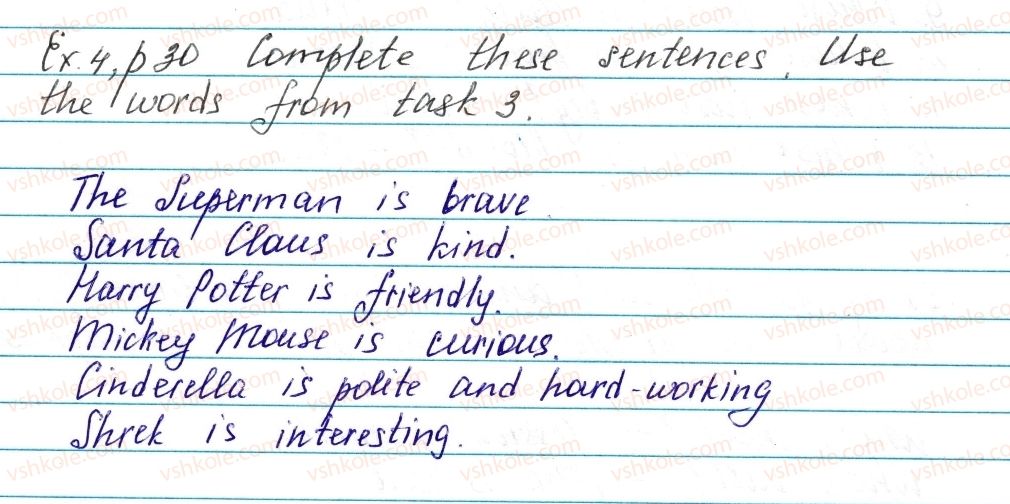 Ex. 4, p 30 Complete these sentences. Use
the words from task 3.
The Superman is brave
Santa Claus is kind.
Harry Potter is friendly.
Mickey Mouse is curious.
Cinderella is polite and hard-working
Shrek is interesting.
vshkole.com